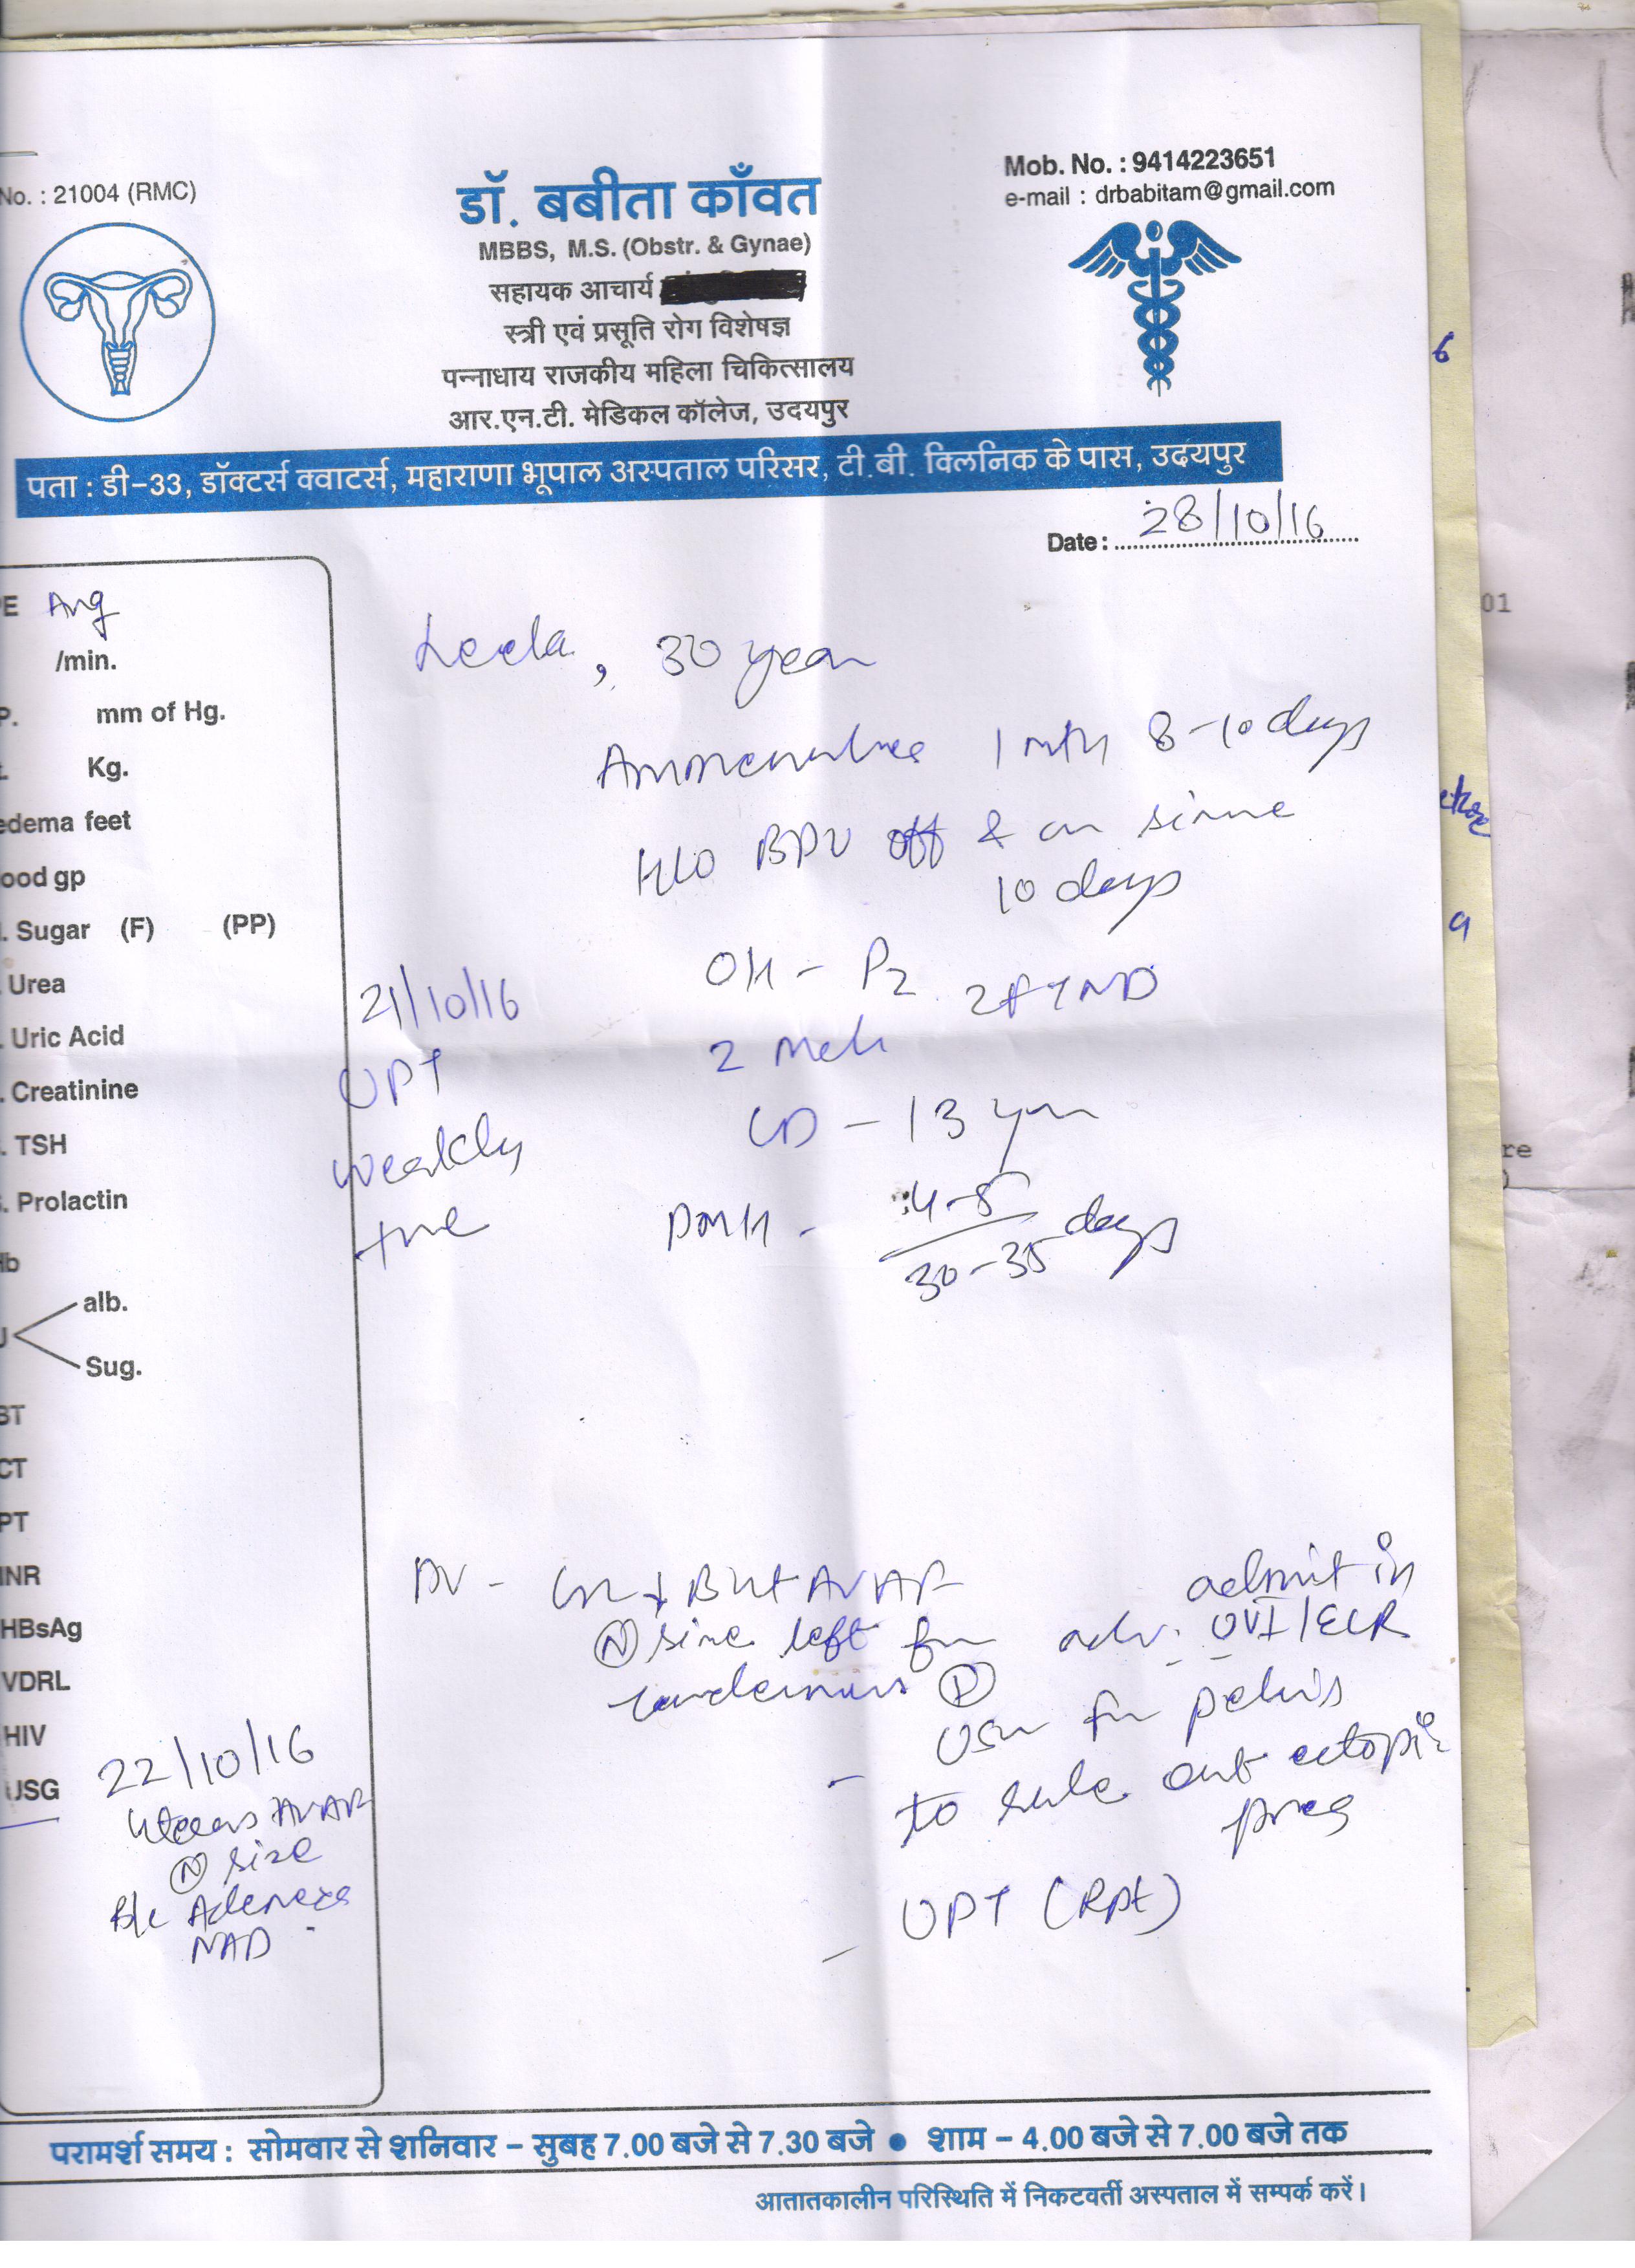 No. : 21004 (RMC)
Mob. No. : 9414223651
e-mail : drbabitam@gmail.com
डॉ. बबीता काँवत
MBBS, M.S. (Obstr. & Gynae)
सहायक आचार्य
स्त्री एवं प्रसूति रोग विशेषज्ञ
पन्नाधाय राजकीय महिला चिकित्सालय
आर.एन.टी. मेडिकल कॉलेज, उदयपुर
पता : डी-33, डॉक्टर्स क्वाटर्स, महाराणा भूपाल अस्पताल परिसर, टी.बी. क्लिनिक के पास, उदयपुर
Date : 28/10/16
E Avg
/min.
P. mm of Hg.
Kg.
edema feet
ood gp
. Sugar (F) (PP)
. Urea
. Uric Acid
. Creatinine
. TSH
. Prolactin
Hb
alb.
Sug.
BT
CT
PT
INR
HBsAg
VDRL
HIV
USG
22/10/16
uterus AVAF
(N) size
B/L Adenexa
NAD
Leela, 30 year
1 mth 8-10 days
H/O BPV off & on since
10 days
OH - P2 2FTND
21/10/16
UPT
weakly
+ve
2 Meh
LD - 13 yrs
PMH - 4-5/30-35 days
PV - AVAF
(N) size left fx
tenderness (P)
adv. admit in
OVI/ECR
- USG for pelvis
to rule out ectopic
preg
- UPT (Rpt)
परामर्श समय : सोमवार से शनिवार - सुबह 7.00 बजे से 7.30 बजे ● शाम - 4.00 बजे से 7.00 बजे तक
आतातकालीन परिस्थिति में निकटवर्ती अस्पताल में सम्पर्क करें।
6
9
01
re